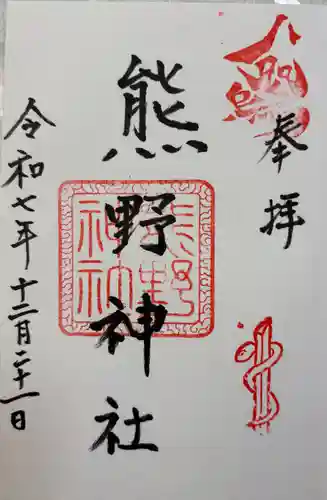 奉拝
熊野神社
令和七年十二月二十一日
熊野
神社